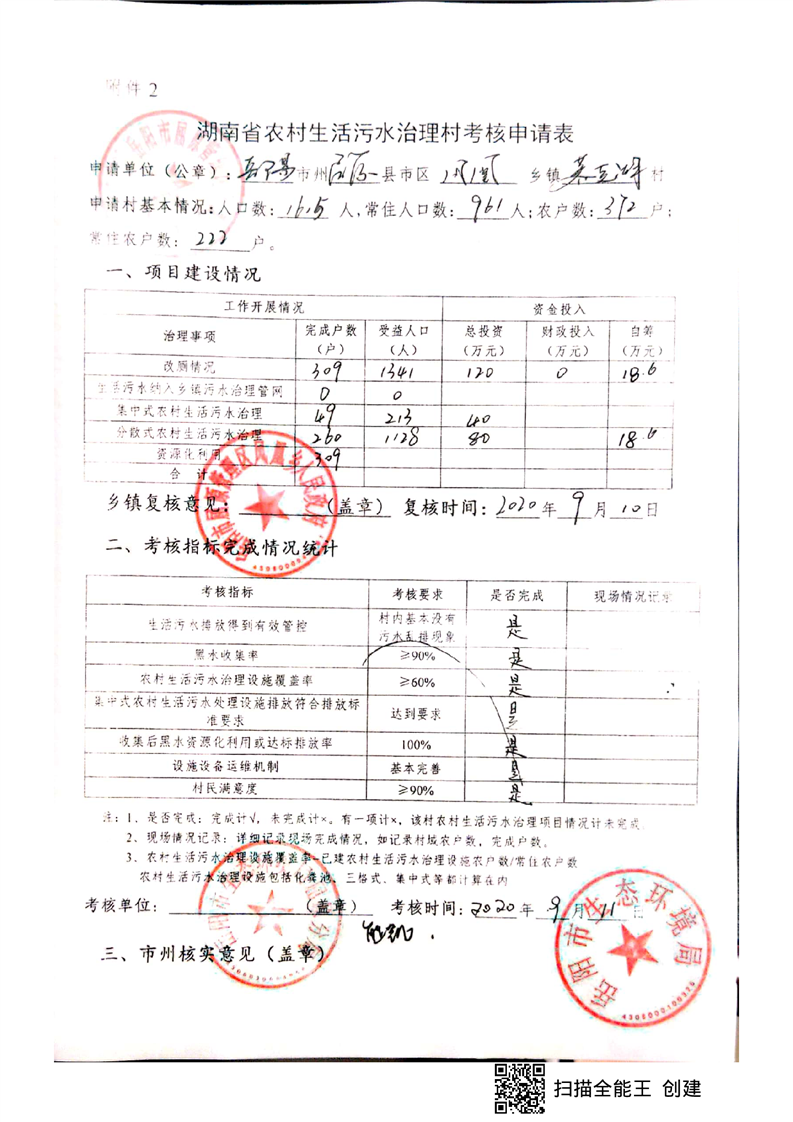 附件2
湖南省农村生活污水治理村考核申请表
申请单位（公章）：岳阳市州屈原县市区凤凰乡镇 村
申请村基本情况：人口数：1615人，常住人口数：961人；农户数：372户；
常住农户数：222户。
一、项目建设情况
工作开展情况 资金投入
治理事项 完成户数（户） 受益人口（人） 总投资（万元） 财政投入（万元） 自筹（万元）
改厕情况 309 1341 120 0 18.6
生活污水纳入乡镇污水治理管网 0 0
集中式农村生活污水治理 49 213 40
分散式农村生活污水治理 260 1128 80 18.6
资源化利用 309
合计
乡镇复核意见：（盖章） 复核时间：2020年9月10日
二、考核指标完成情况统计
考核指标 考核要求 是否完成 现场情况记录
生活污水排放得到有效管控 村内基本没有污水乱排现象 是
黑水收集率 ≥90% 是
农村生活污水治理设施覆盖率 ≥60% 是
集中式农村生活污水处理设施排放符合排放标准要求 达到要求 是
收集后黑水资源化利用或达标排放率 100% 是
设施设备运维机制 基本完善 是
村民满意度 ≥90% 是
注：1、是否完成：完成计√，未完成计×。有一项计×，该村农村生活污水治理项目情况计未完成
2、现场情况记录：详细记录现场完成情况，如记录村域农户数，完成户数。
3、农村生活污水治理设施覆盖率=已建农村生活污水治理设施农户数/常住农户数
农村生活污水治理设施包括化粪池、三格式、集中式等都计算在内
考核单位：（盖章） 考核时间：2020年9月11日
三、市州核实意见（盖章）
岳阳市生态环境局
扫描全能王 创建